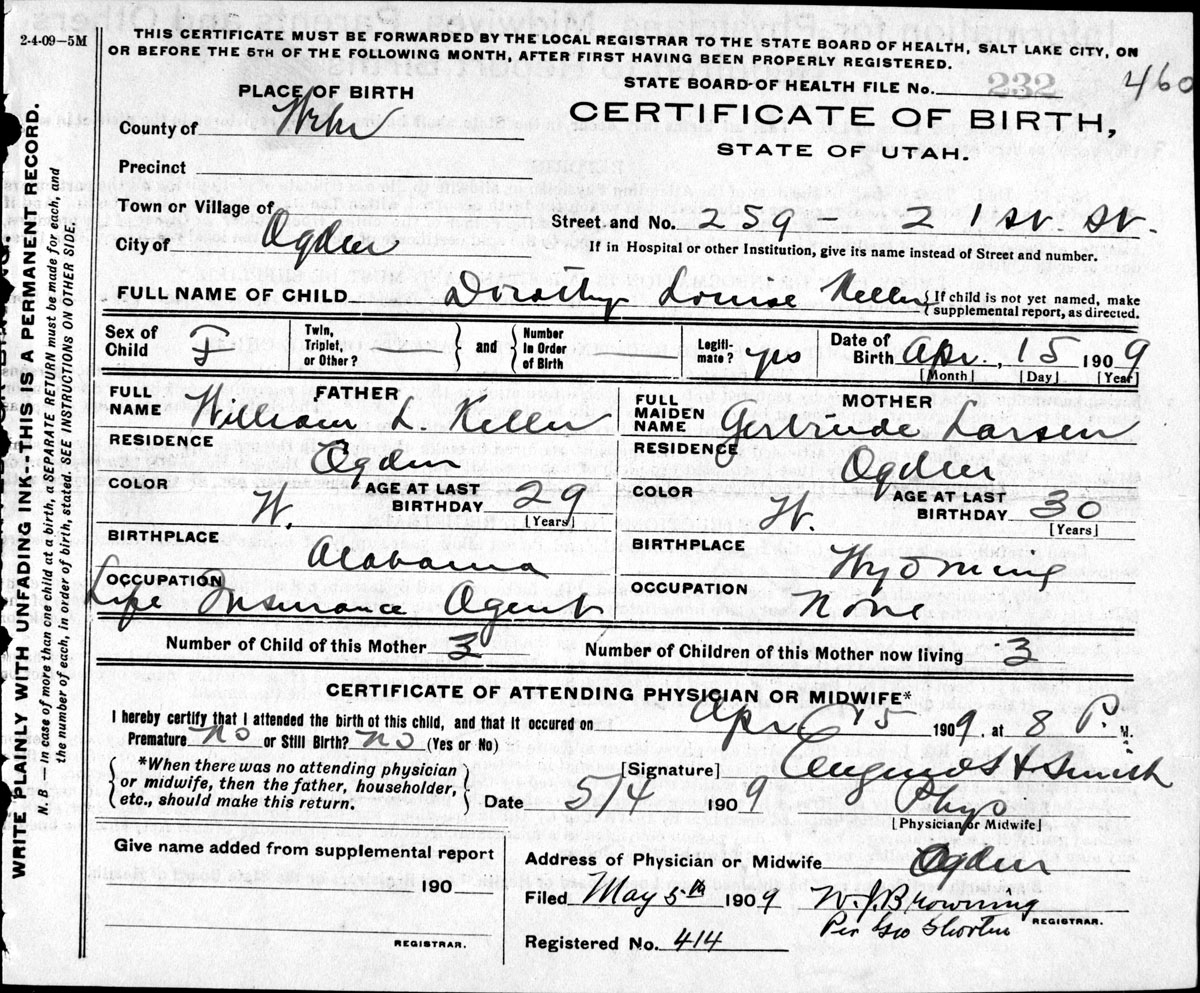 2-4-09-5M
THIS CERTIFICATE MUST BE FORWARDED BY THE LOCAL REGISTRAR TO THE STATE BOARD OF HEALTH, SALT LAKE CITY, ON
OR BEFORE THE 5TH OF THE FOLLOWING MONTH, AFTER FIRST HAVING BEEN PROPERLY REGISTERED.
STATE BOARD OF HEALTH FILE No. 232 460
PLACE OF BIRTH
CERTIFICATE OF BIRTH,
STATE OF UTAH.
County of
Precinct
Town or Village of
Street and No. 259 - 21 st. st.
City of Ogden
If in Hospital or other Institution, give its name instead of Street and number.
FULL NAME OF CHILD Dorothy Louise Keller {If child is not yet named, make
supplemental report, as directed.
Sex of Child F Twin, Triplet, or Other? } and { Number in Order of Birth Legiti- mate? yes Date of Birth Apr. 15 1909
[Month] [Day] [Year]
FATHER
FULL NAME William L. Keller
RESIDENCE
Ogden
COLOR W. AGE AT LAST BIRTHDAY 29
[Years]
BIRTHPLACE
Alabama
OCCUPATION
Life Insurance Agent
MOTHER
FULL MAIDEN NAME Gertrude Larsen
RESIDENCE
Ogden
COLOR W. AGE AT LAST BIRTHDAY 30
[Years]
BIRTHPLACE
Wyoming
OCCUPATION
None
Number of Child of this Mother 3 Number of Children of this Mother now living 3
CERTIFICATE OF ATTENDING PHYSICIAN OR MIDWIFE*
I hereby certify that I attended the birth of this child, and that it occured on Apr 15 1909, at 8 P. M.
Premature No or Still Birth? No (Yes or No)
{ *When there was no attending physician
or midwife, then the father, householder,
etc., should make this return. }
[Signature] Smith
Date 5/4 1909
[Physician or Midwife]
Give name added from supplemental report
190
REGISTRAR.
Address of Physician or Midwife Ogden
Filed May 5th 1909 W. J. Browning
REGISTRAR.
Per
Registered No. 414
WRITE PLAINLY WITH UNFADING INK--THIS IS A PERMANENT RECORD.
N. B.—In case of more than one child at a birth, a SEPARATE RETURN must be made for each, and
the number of each, in order of birth, stated. SEE INSTRUCTIONS ON OTHER SIDE.